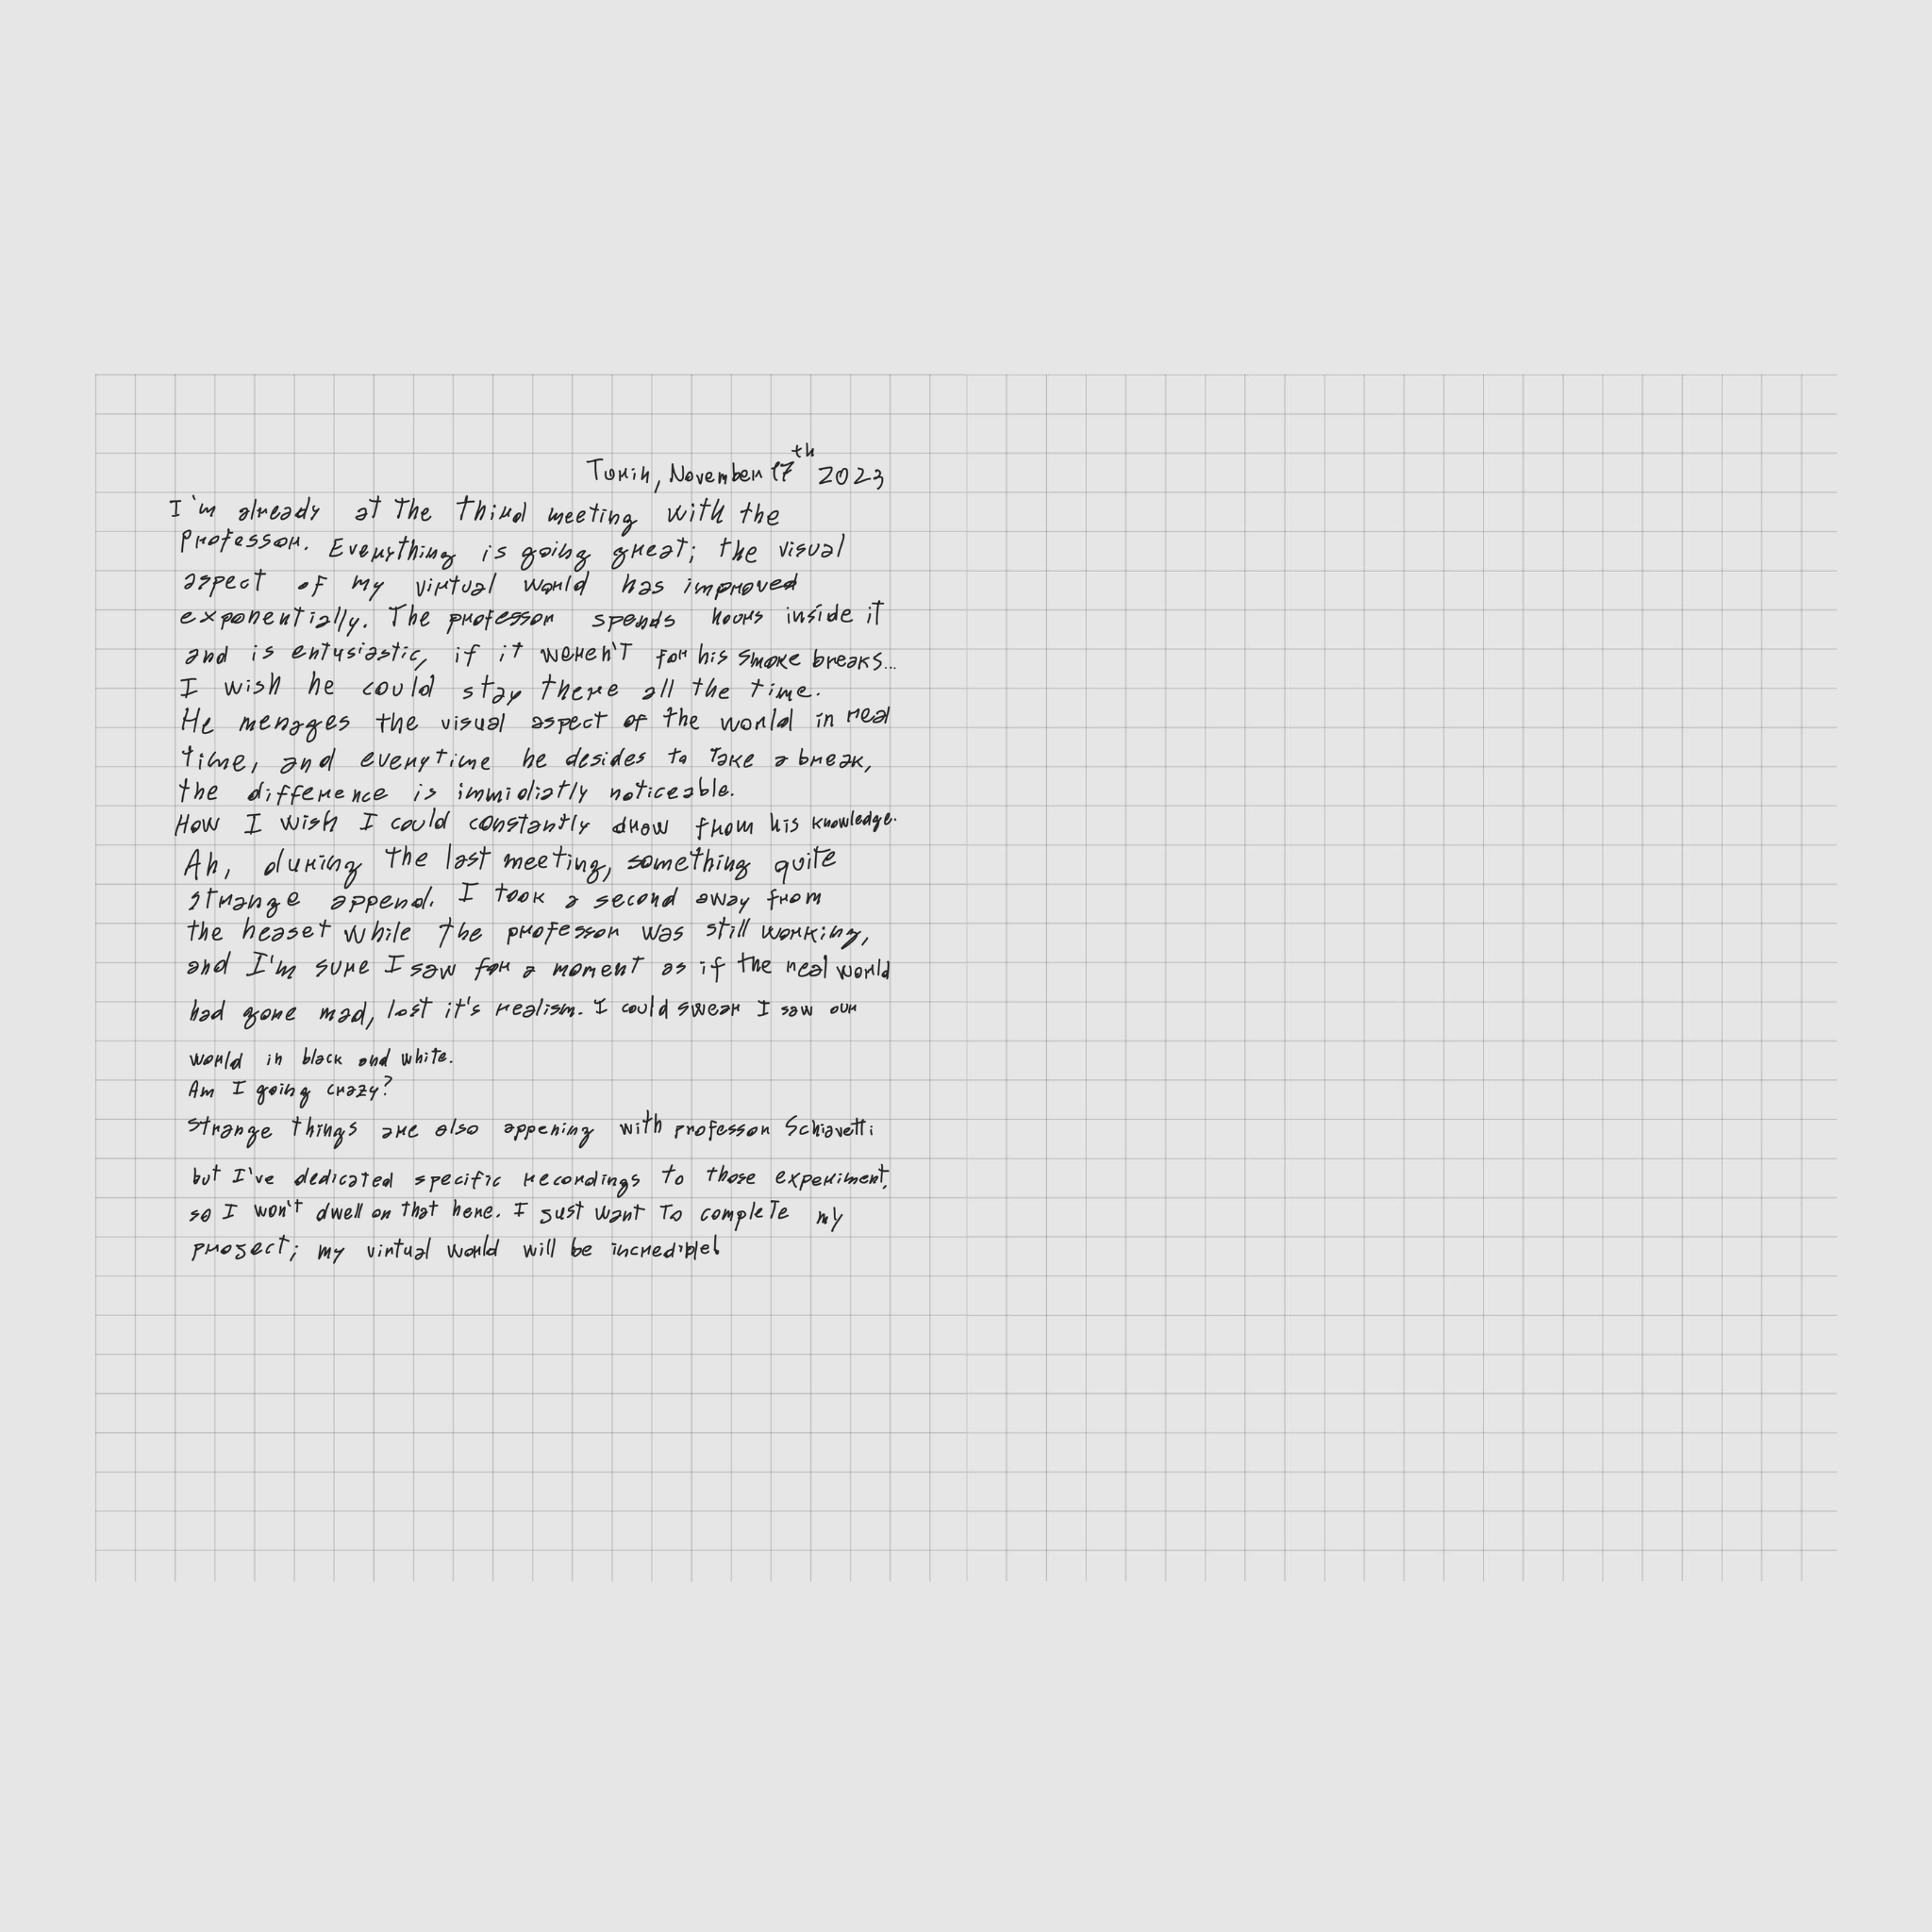 Turin, November 17th 2023
I'm already at the third meeting with the
professor. Everything is going great; the visual
aspect of my virtual world has improved
exponentially. The professor spends hours inside it
and is entusiastic, if it weren't for his smoke breaks...
I wish he could stay there all the time.
He menages the visual aspect of the world in real
time, and everytime he desides to take a break,
the difference is immidiatly noticeable.
How I wish I could constantly drow from his knowledge.
Ah, during the last meeting, something quite
strange append. I took a second away from
the heaset while the professor was still working,
and I'm sure I saw for a moment as if the real world
had gone mad, lost it's realism. I could swear I saw our
world in black and white.
Am I going crazy?
Strange things are also appening with professor Schiavetti
but I've dedicated specific recordings to those experiment,
so I won't dwell on that here. I just want to complete my
project; my virtual world will be incredible!